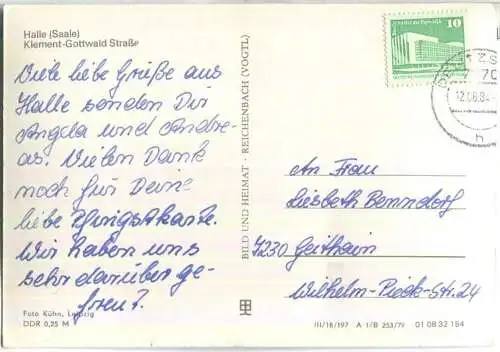 Halle (Saale)
Klement-Gottwald Straße
Viele liebe Grüße aus
Halle senden Dir
Angela und Andre-
as. Vielen Dank
noch für Deine
liebe Pfingstkarte.
Wir haben uns
sehr darüber ge-
freut.
Foto Kühn, Leipzig
DDR 0,25 M
BILD UND HEIMAT · REICHENBACH (VOGTL)
10
12.06.84
h
An Frau
Liesbeth Benndorf
7230 Geithain
Wilhelm-Pieck-Str. 24
III/18/197 A 1/B 253/79 01 08 32 164